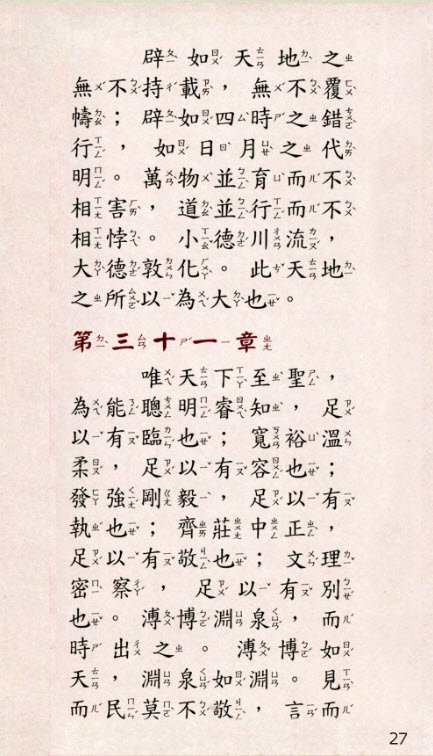 辟如天地之
無不持載，無不覆
幬；辟如四時之錯
行，如日月之代
明。萬物並育而不
相害，道並行而不
相悖。小德川流，
大德敦化。此天地
之所以為大也。
第三十一章
唯天下至聖，
為能聰明睿知，足
以有臨也；寬裕溫
柔，足以有容也；
發強剛毅，足以有
執也；齊莊中正，
足以有敬也；文理
密察，足以有別
也。溥博淵泉，而
時出之。溥博如
天，淵泉如淵。見
而民莫不敬，言而
27